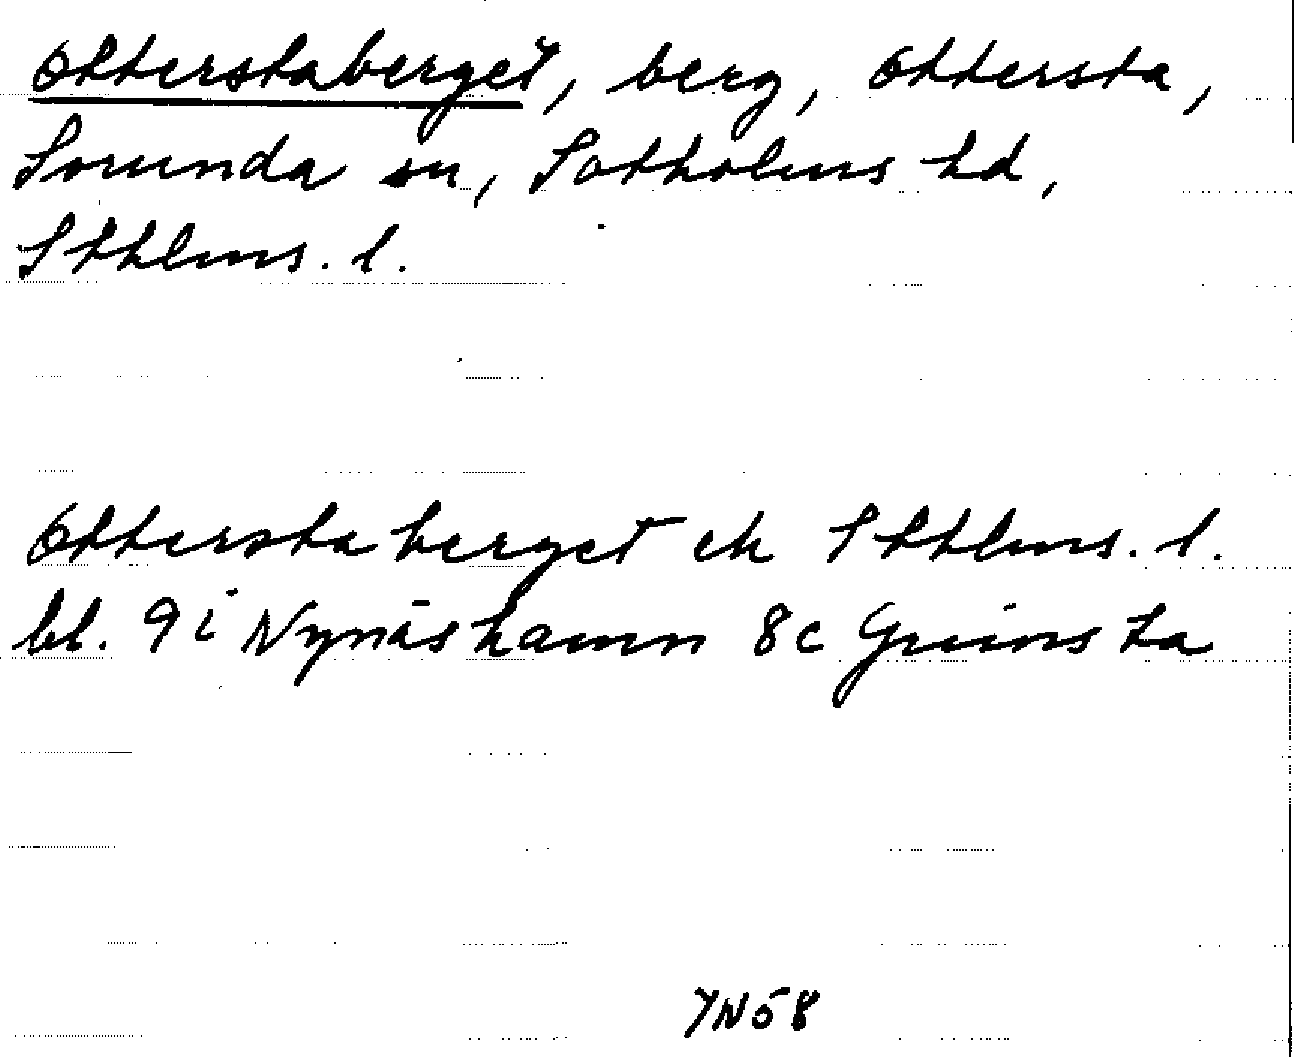 Otterstaberget, berg, Ottersta,
Sorunda sn, Sotholms hd,
Sthlms. l.
Otterstaberget ek Sthlms. l.
bl. 9i Nynäshamn 8c Grimsta
YN58